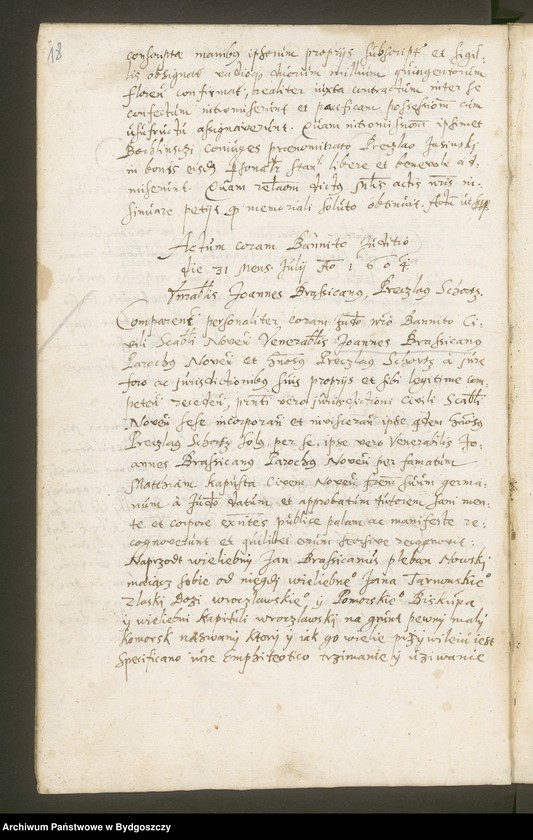 18
conscriptæ manibq ipsorum proprijs subscript et sigil-
lis obsignat radioq duorum millium quingentorum
floren confirmat, realiter iuxta contractum inter se
confectum intromiserunt et pacificam possessionem cum
usufructu assignaverunt. Quam intromissionem ipsimet
coniuges prænominato Preczlao Jasinski
in bonis eisdem libere et benevole ad-
miserunt. Quam actis nris in-
sinuare petijt, q memoriali soluto obtinuit. Actum ut supra.
Actum coram Bannito Juditio
die 31 Mens Julij Ao 1604
Joannes Brassicanq, Preczlaq Schortz.
Comparens personaliter coram Judo nro Bannito Ci-
vili Scabli Noven Venerablis Joannes Brassicanq
Parochq Noven et Preczlaq Schortz à jure
foro ac jurisdictionibq suis proprijs et sibi legitime com-
peten receden, jurisdictioni Civili Scabli
Noven sese incorporan et invisceran ipse
Preczlaq Schortz solq per se, ipse vero Venerabilis Jo-
annes Brassicanq Parochq Noven per famatum
Matthiam Kapusta Civem Noven suum germa-
num à Judo datum et approbatum tutorem sani men-
te et corpore publice palam ac manifeste re-
cognoverunt et quilibet eorum seorsive recognovit.
Naprzodt wieliebny Jan Brassicanus pleban Nowski
maiącz sobie od niegdy wieliebneo Jana Tarnowskieo
z laski Bozi wroczlawskieo y Pomorskieo Biskupa
y wieliebni Kapituli wroczlawski na grunt pewny mały
Komorsk nazwany ktory y iak go wiele przywileiu iest
specificano iure Emphiteotico trzimanie y uziwanie
Archiwum Państwowe w Bydgoszczy